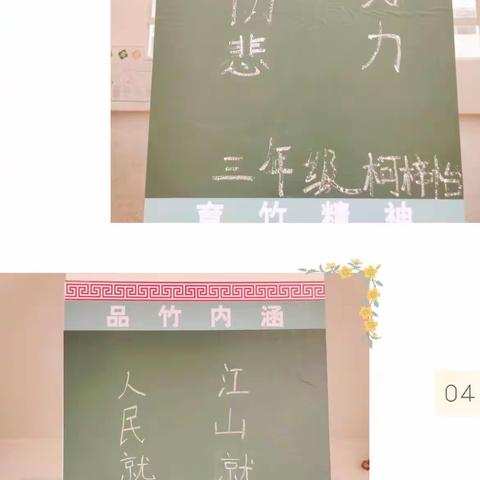 力
悲
三年级 柯梓怡
育竹精神
品竹内涵
江山就
人民就
04